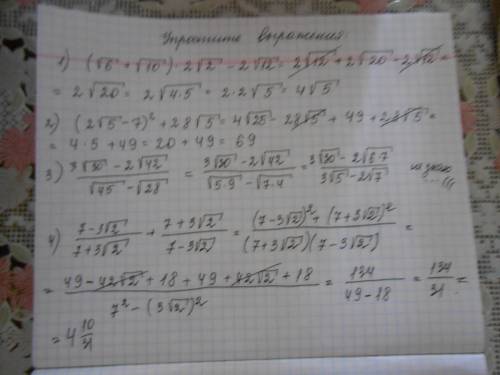 Упростите выражения:
1) (√6 + √10) · 2√2 - 2√12 = 2√12 + 2√20 - 2√12 =
= 2√20 = 2√4·5 = 2·2√5 = 4√5
2) (2√5 - 7)² + 28√5 = 4√25 - 28√5 + 49 + 28√5 =
= 4·5 + 49 = 20 + 49 = 69
3) (3√30 - 2√42)/(√45 - √28) = (3√30 - 2√42)/(√5·9 - √7·4) = (3√30 - 2√6·7)/(3√5 - 2√7) не знаю
4) (7-3√2)/(7+3√2) + (7+3√2)/(7-3√2) = ((7-3√2)² + (7+3√2)²)/((7+3√2)(7-3√2)) =
= (49 - 42√2 + 18 + 49 + 42√2 + 18)/(7² - (3√2)²) = 134/(49-18) = 134/31 =
= 4 10/31